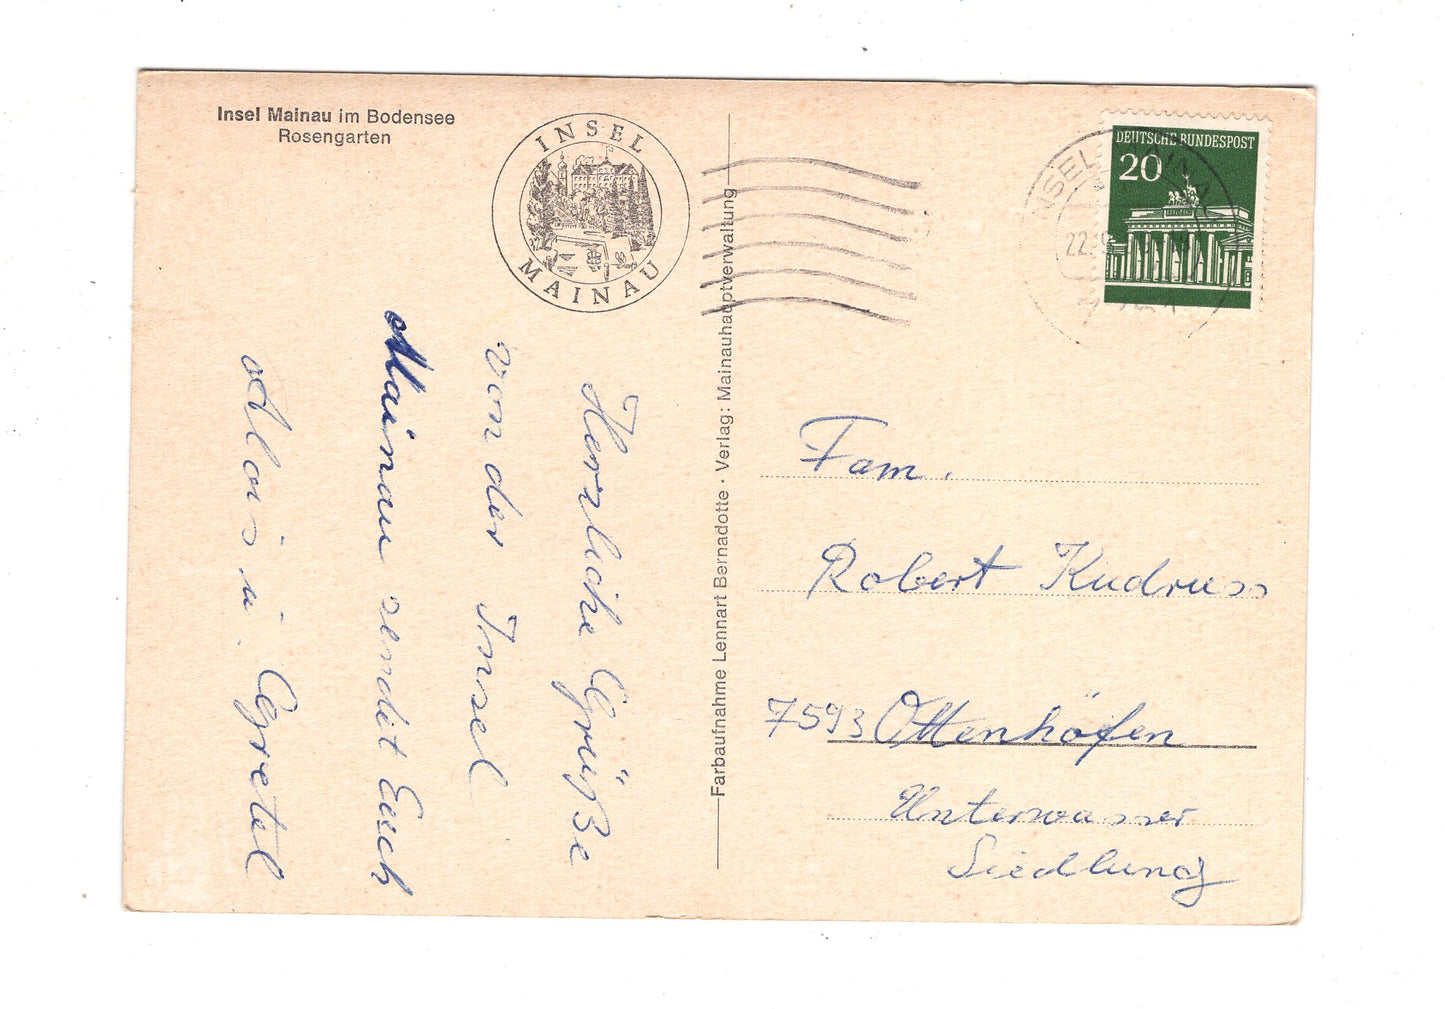 Insel Mainau im Bodensee
Rosengarten
INSEL
MAINAU
Herzliche Grüße
von der Insel
Mainau sendet Euch
Alois u. Gretel
Farbaufnahme Lennart Bernadotte · Verlag: Mainauhauptverwaltung
INSEL MAINAU
22.9
DEUTSCHE BUNDESPOST
20
Fam.
Robert Kudruss
7593 Ottenhöfen
Unterwasser
Siedlung